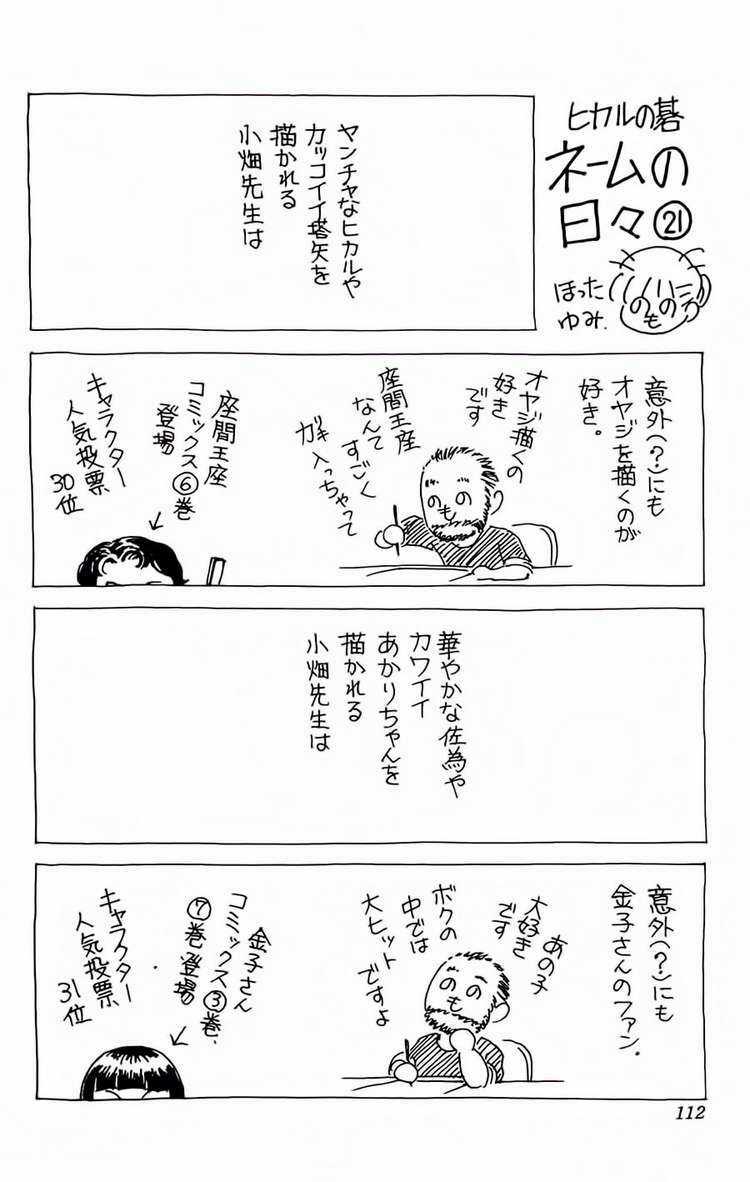 ヒカルの碁
ネームの
日々㉑
ほった
ゆみ.
ヤンチャなヒカルや
カッコイイ塔矢を
描かれる
小畑先生は
意外(?)にも
オヤジを描くのが
好き。
オヤジ描くの
好き
です
座間王座
なんて
すごく
ガキ入っちゃって
のもの
座間王座
コミックス⑥巻
登場
キャラクター
人気投票
30位
華やかな佐為や
カワイイ
あかりちゃんを
描かれる
小畑先生は
意外(?)にも
金子さんのファン.
あの子
大好き
です
ボクの
中では
大ヒット
ですよ
のもの
金子さん
コミックス③巻、
⑦巻登場
キャラクター
人気投票
31位
112